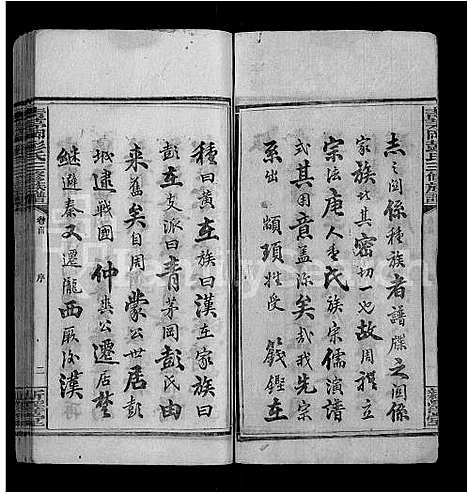 志之關係種族者譜牒之關係
家族尤其密切一也故周禮立
宗法唐人重氏族宋儒演譜
式其用意蓋深矣哉我先宗
系出 顓頊姓受 籛鏗在
種曰黃在族曰漢在家族曰
彭在支派曰青茅岡彭氏由
來舊矣自周 蒙公世居彭
城建戰國 仲爽公遷居楚
繼避秦又遷隴西厥後漢
卷首 序 二